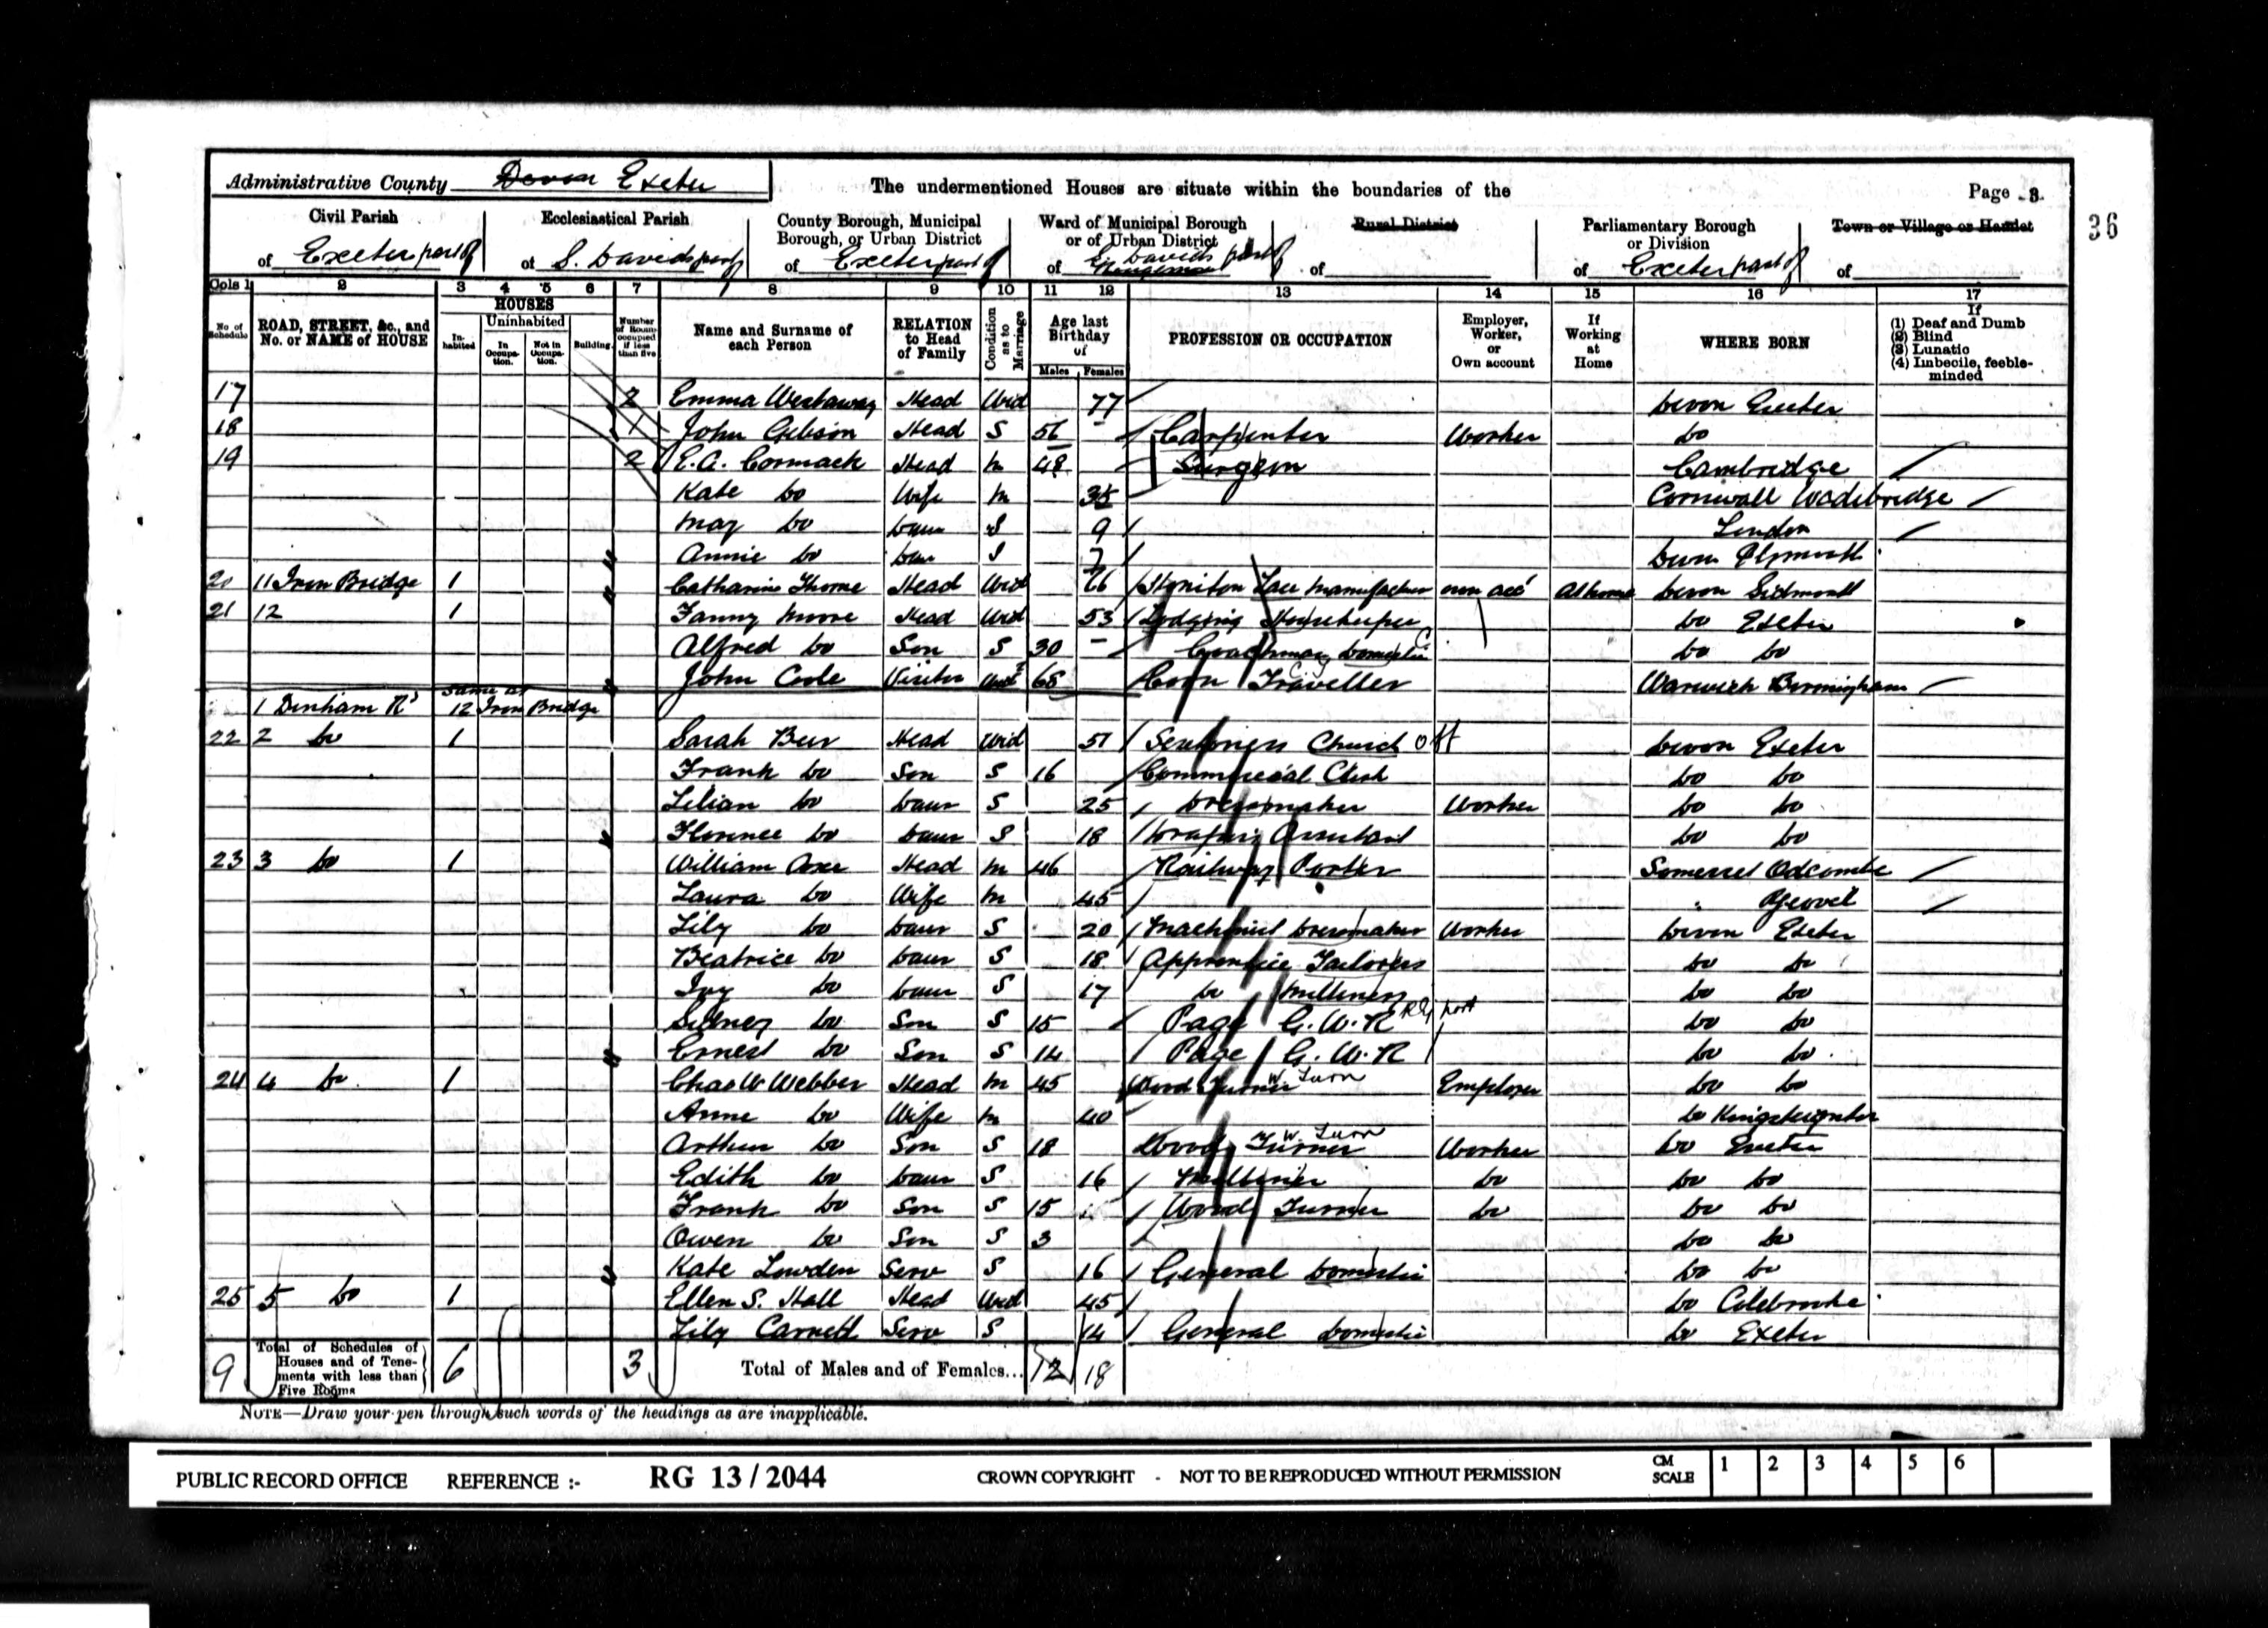 Administrative County Devon Exeter
The undermentioned Houses are situate within the boundaries of the
Page 3
36
Civil Parish of Exeter part of
Ecclesiastical Parish of S. Davids part of
County Borough, Municipal Borough, or Urban District of Exeter part of
Ward of Municipal Borough or of Urban District of S. Davids part of
Rural District of
Parliamentary Borough or Division of Exeter part of
Town or Village or Hamlet of
Cols 1 2 3 4 5 6 7 8 9 10 11 12 13 14 15 16 17
No of Schedule
ROAD, STREET, &c., and No. or NAME of HOUSE
HOUSES
Inhabited
Uninhabited
In Occupation.
Not in Occupation.
Building
Number of Rooms occupied if less than five
Name and Surname of each Person
RELATION to Head of Family
Condition as to Marriage
Age last Birthday of
Males Females
PROFESSION OR OCCUPATION
Employer, Worker, or Own account
If Working at Home
WHERE BORN
If
(1) Deaf and Dumb
(2) Blind
(3) Lunatic
(4) Imbecile, feeble-minded
17 2 Emma Westaway Head Wid 77 Devon Exeter
18 1 John Gibson Head S 56 Carpenter Worker Do
19 2 E.A. Cormack Head M 48 Surgeon Cambridge
Kate Do Wife M 35 Cornwall Wadebridge
May Do Daur S 9 London
Annie Do Daur S 7 Devon Plymouth
20 11 Iron Bridge 1 Catharine Thorne Head Wid 66 Honiton Lace Manufacturer own acc At home Devon Sidmouth
21 12 1 Fanny Moore Head Wid 53 Lodging Housekeeper Do Exeter
Alfred Do Son S 30 Coachman Domestic Do Do
John Cole Visitor 68 Corn Traveller Warwick Birmingham
1 Dinham Rd same as 12 Iron Bridge
22 2 Do 1 Sarah Head Wid 51 Church Off Devon Exeter
Frank Do Son S 16 Commercial Clerk Do Do
Lilian Do Daur S 25 Dressmaker Worker Do Do
Florence Do Daur S 18 Drapers Assistant Do Do
23 3 Do 1 William Head M 46 Railway Porter Somerset Odcombe
Laura Do Wife M 45 " Yeovil
Lily Do Daur S 20 Machinist Dressmaker Worker Devon Exeter
Beatrice Do Daur S 18 Apprentice Tailoress Do Do
Ivy Do Daur S 17 Do Milliners Do Do
Sidney Do Son S 15 Page G.W.R Do Do
Ernest Do Son S 14 Page G.W.R Do Do
24 4 Do 1 Chas W Webber Head M 45 Wood Turner W. Turn Employer Do Do
Anne Do Wife M 40 Do Kingsteignton
Arthur Do Son S 18 Wood Turner W. Turn Worker Do Exeter
Edith Do Daur S 16 Milliner Do Do Do
Frank Do Son S 15 Wood Turner Do Do Do
Owen Do Son S 3 Do Do
Kate Lowden Serv S 16 General Domestic Do Do
25 5 Do 1 Ellen S. Hall Head Wid 45 Do Colebrooke
Lily Carnell Serv S 14 General Domestic Do Exeter
9 Total of Schedules of Houses and of Tenements with less than Five Rooms 6 3 Total of Males and of Females... 12 18
NOTE—Draw your pen through such words of the headings as are inapplicable.
PUBLIC RECORD OFFICE REFERENCE :- RG 13 / 2044 CROWN COPYRIGHT - NOT TO BE REPRODUCED WITHOUT PERMISSION
CM SCALE 1 2 3 4 5 6